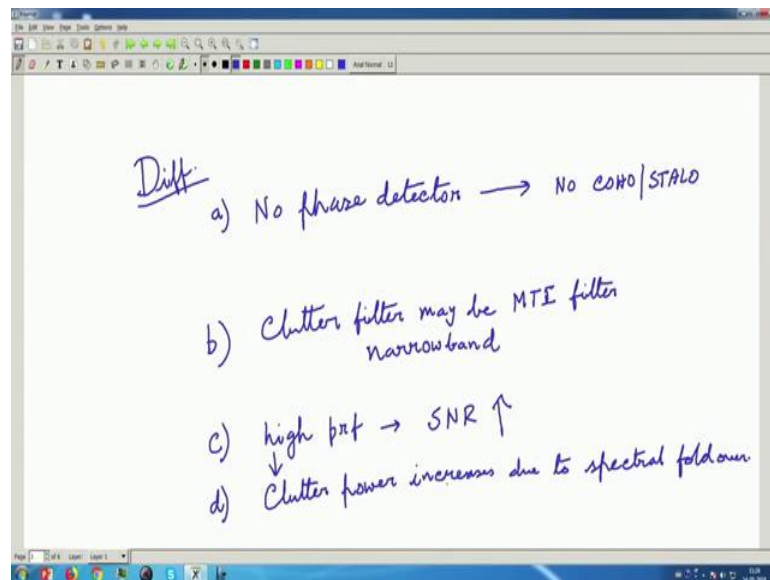 File Edit View Page Tools Options Help
Diff.
a) No phase detector → NO COHO/STALO
b) Clutter filter may be MTI filter
narrowband
c) high prf → SNR ↑
↓
d) Clutter power increases due to spectral foldover.